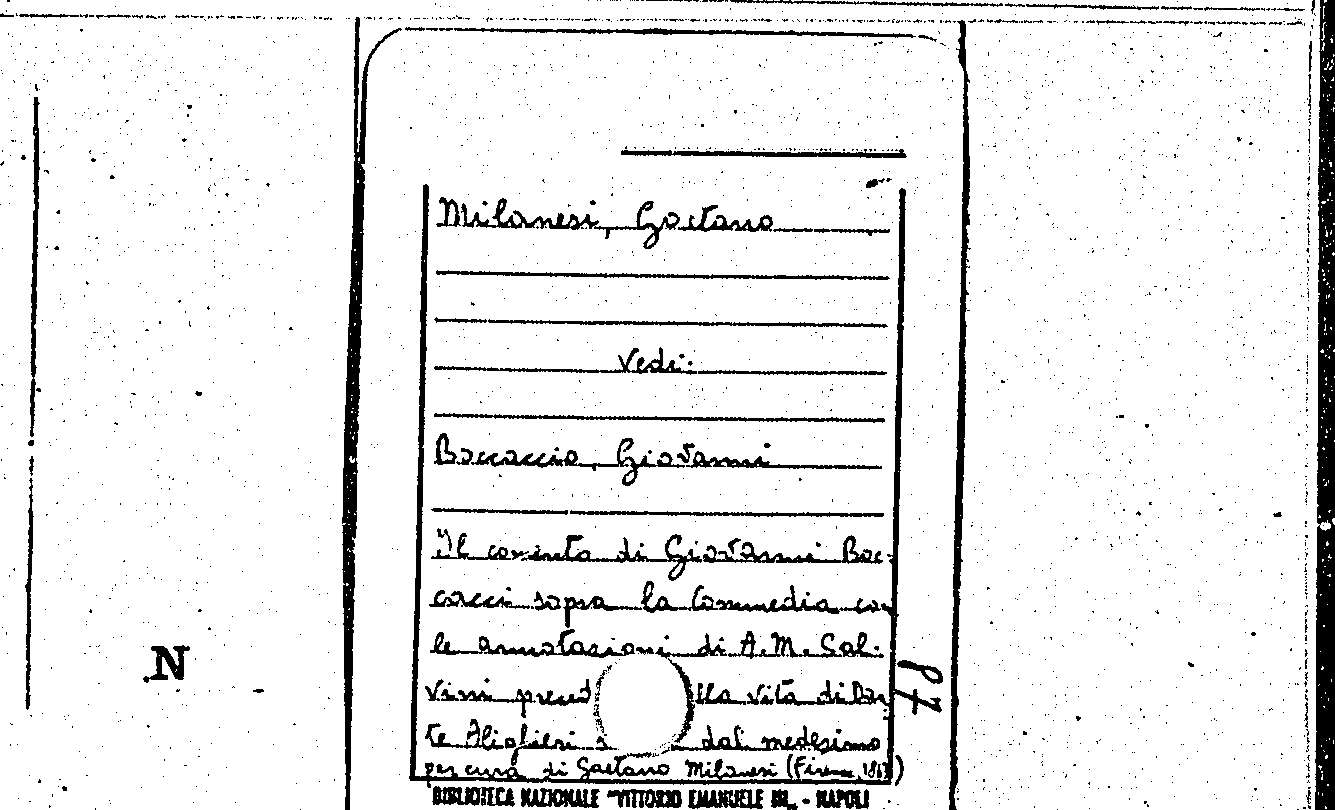 Milanesi, Gaetano
Vedi:
Boccaccio, Giovanni
Il comento di Giovanni Boc-
cacci sopra la Commedia con
le annotazioni di A.M. Sal-
vini preced lla vita di Dan
te Alighieri s dal medesimo
per cura di Gaetano Milanesi (Firenze, 1863)
BIBLIOTECA NAZIONALE "VITTORIO EMANUELE III" - NAPOLI
N